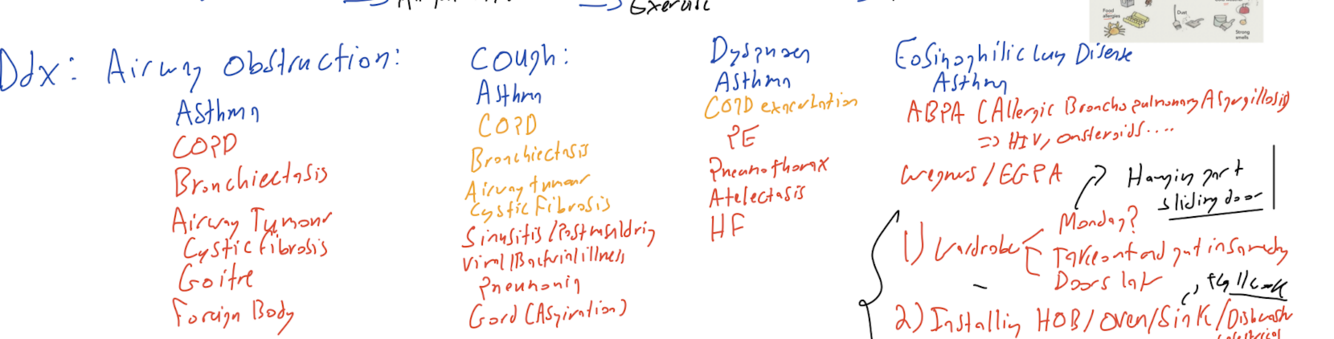 Exercise
Food allergies
Dust
Strong smells
Ddx: Airway Obstruction:
Asthma
COPD
Bronchiectasis
Airway Tumour
Cystic Fibrosis
Goitre
Foreign Body
Cough:
Asthma
COPD
Bronchiectasis
Airway tumour
Cystic Fibrosis
Sinusitis/Postnasaldrip
Viral/Bacterial illness
Pneumonia
Gord (Aspiration)
Dyspnoea
Asthma
COPD exacerbation
PE
Pneumothorax
Atelectasis
HF
Eosinophilic Lung Disease
Asthma
ABPA (Allergic Bronchopulmonary Aspergillosis)
=> HIV, on steroids....
Wegners/EGPA
Hanging part
sliding door
1) Wardrobe
Monday?
Take out and put in same day
Doors lat
2) Installing HOB/Oven/Sink/Dishwash